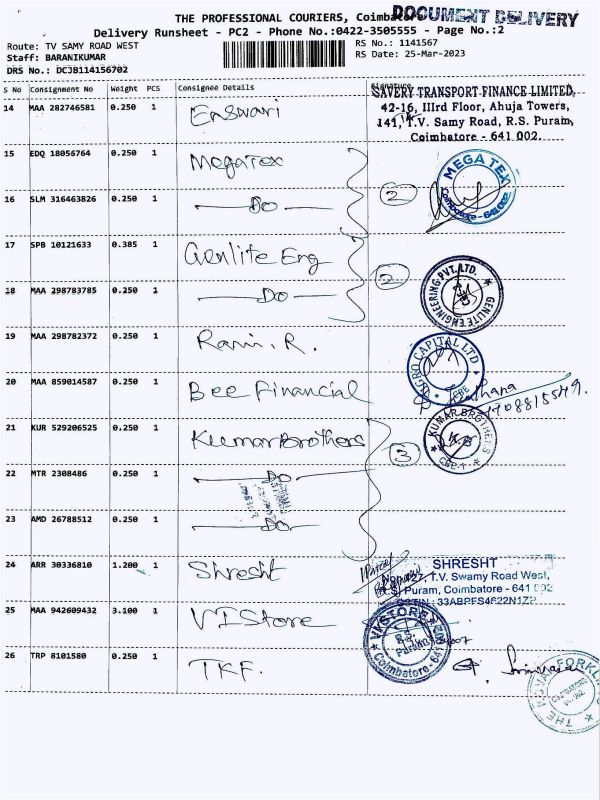 THE PROFESSIONAL COURIERS, Coimbatore
DOCUMENT DELIVERY
Delivery Runsheet - PC2 - Phone No.:0422-3505555 - Page No.:2
Route: TV SAMY ROAD WEST
RS No.: 1141567
Staff: BARANIKUMAR
RS Date: 25-Mar-2023
DRS No.: DCJB114156702
S No Consignment No Weight PCS Consignee Details Signature
SAVERY TRANSPORT FINANCE LIMITED,
42-16, IIIrd Floor, Ahuja Towers,
141, T.V. Samy Road, R.S. Puram,
Coimbatore - 641 002.
14 MAA 282746581 0.250 1 Enswari
15 EDQ 18056764 0.250 1 Megatex
MEGA TEX
Coimbatore - 641 002
16 SLM 316463826 0.250 1 Do
2
17 SPB 10121633 0.385 1 Genlite Eng
2
GENLITE ENGINEERING PVT. LTD.
18 MAA 298783785 0.250 1 Do
19 MAA 298782372 0.250 1 Rani. R.
AGRO CAPITAL LTD
CBE
20 MAA 859014587 0.250 1 Bee Financial
21 KUR 529206525 0.250 1 Kumar Brothers
KUMAR BROTHERS
CBE-1
3
22 MTR 2308486 0.250 1 Do
23 AMD 26788512 0.250 1 Do
24 ARR 30336810 1.200 1 Shresht
SHRESHT
T.V. Swamy Road West,
R.S. Puram, Coimbatore - 641 002
GSTIN : 33ABPFS4622N1ZP
25 MAA 942609432 3.100 1 VIStore
VI STORE
R.S. Puram
Coimbatore - 641
26 TRP 8101580 0.250 1 TKF.
THE KOVAI FORKLI
COIMBATORE
641 002